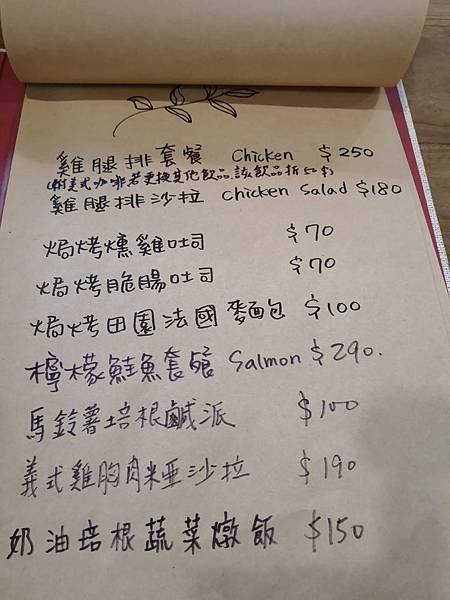 雞腿排套餐 Chicken $250
(附美式咖啡若更換其他飲品,該飲品折50步)
雞腿排沙拉 Chicken Salad $180
焗烤燻雞吐司 $70
焗烤脆腸吐司 $70
焗烤田園法國麵包 $100
檸檬鮭魚套餐 Salmon $290.
馬鈴薯培根鹹派 $100
義式雞胸肉米亞沙拉 $190
奶油培根蔬菜燉飯 $150